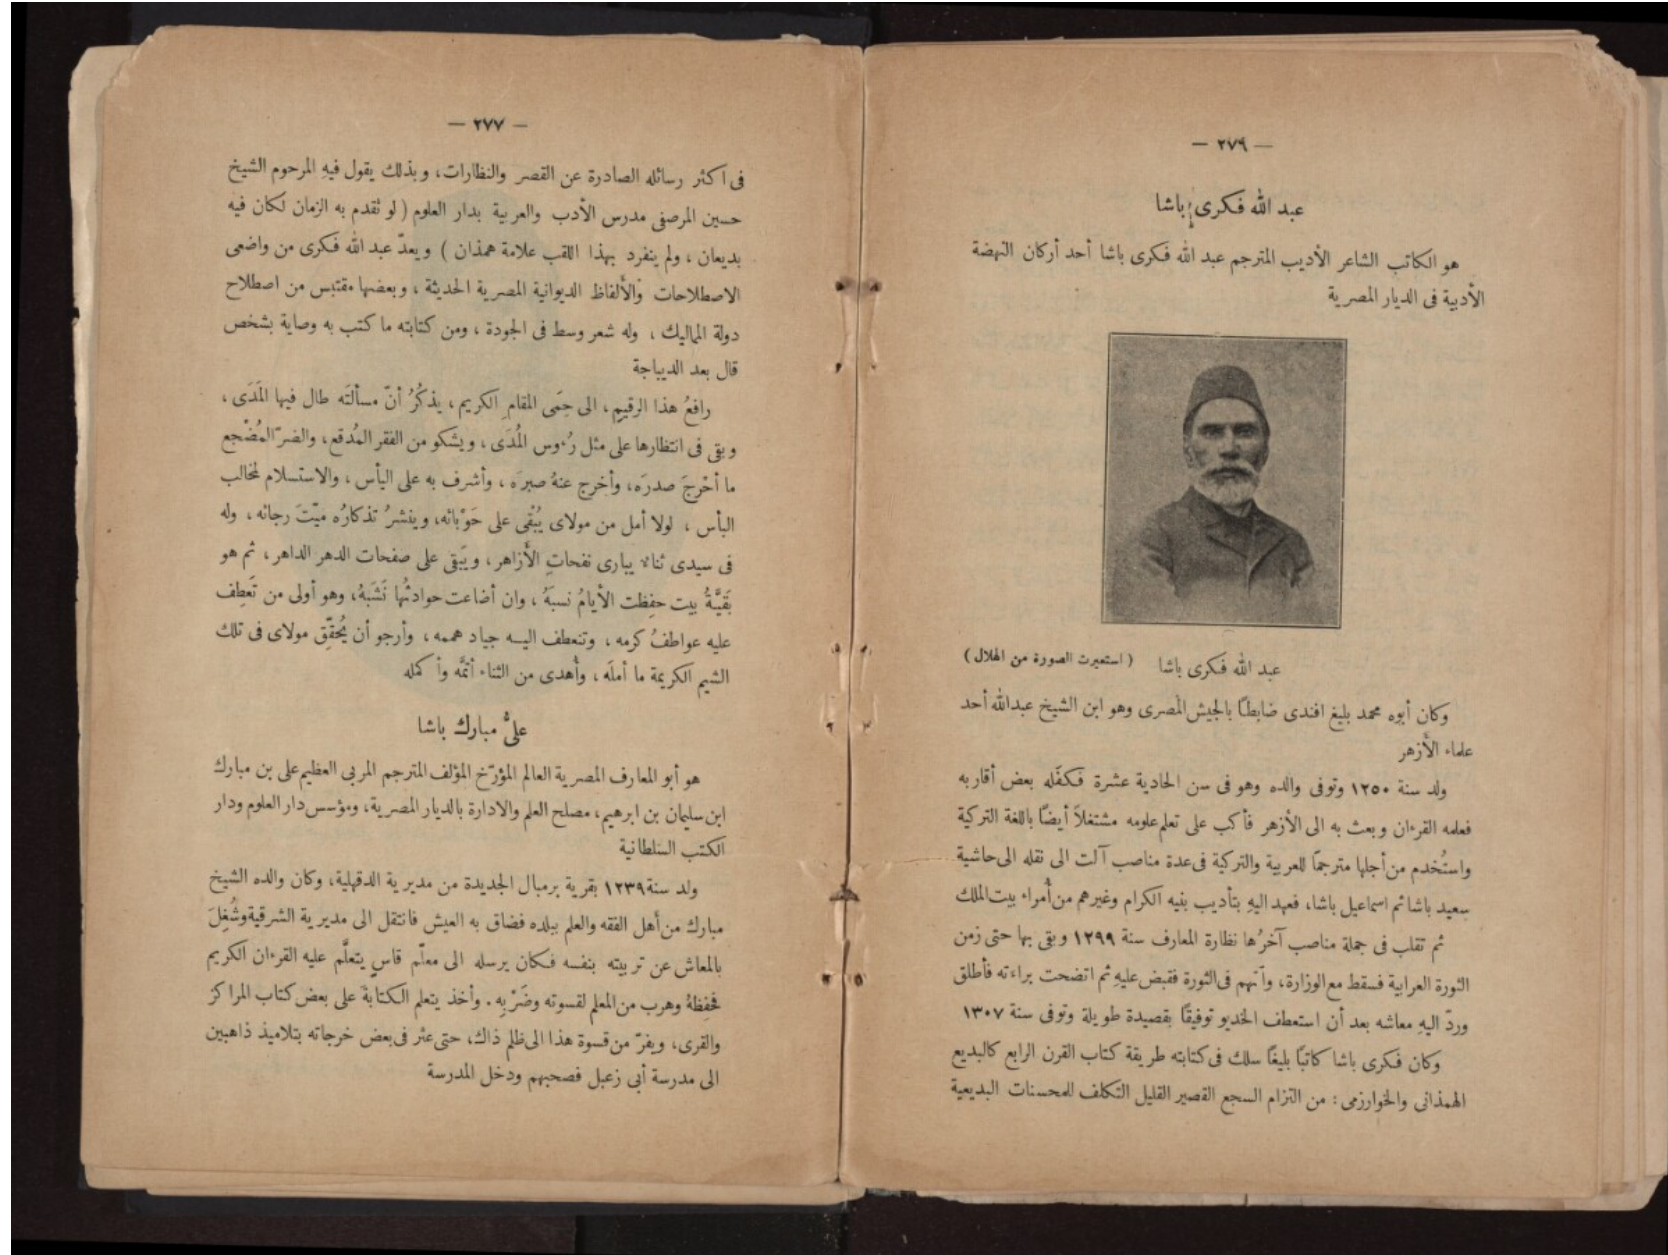 — ٢٧٩ —
عبد الله فكرى باشا
هو الكاتب الشاعر الأديب المترجم عبد الله فكرى باشا أحد أركان النهضة
الأدبية فى الديار المصرية
عبد الله فكرى باشا ( استعيرت الصورة من الهلال )
وكان أبوه محمد بليغ افندى ضابطًا بالجيش المصرى وهو ابن الشيخ عبدالله أحد
علماء الأزهر
ولد سنة ١٢٥٠ وتوفى والده وهو فى سن الحادية عشرة فكفَله بعض أقاربه
فعلمه القرءان وبعث به الى الأزهر فأكب على تعلم علومه مشتغلاً أيضًا باللغة التركية
واستُخدم من أجلها مترجمًا للعربية والتركية فى عدة مناصب آلت الى نقله الى حاشية
سعيد باشا ثم اسماعيل باشا، فعهد اليهِ بتأديب بنيه الكرام وغيرهم من أُمراء بيت الملك
ثم تقلب فى جملة مناصب آخرُها نظارة المعارف سنة ١٢٩٩ وبقى بها حتى زمن
الثورة العرابية فسقط مع الوزارة، واتهم فى الثورة فقبض عليهِ ثم اتضحت براءته فأطلق
وردّ اليهِ معاشه بعد أن استعطف الخديو توفيقًا بقصيدة طويلة وتوفى سنة ١٣٠٧
وكان فكرى باشا كاتبًا بليغًا سلك فى كتابته طريقة كتاب القرن الرابع كالبديع
الهمذانى والخوارزمى : من التزام السجع القصير القليل التكلف للمحسنات البديعية
— ٢٧٧ —
فى اكثر رسائله الصادرة عن القصر والنظارات، وبذلك يقول فيهِ المرحوم الشيخ
حسين المرصفى مدرس الأدب والعربية بدار العلوم ( لو تقدم به الزمان لكان فيه
بديعان ، ولم ينفرد بهذا اللقب علامة همذان ) ويعدّ عبد الله فكرى من واضعى
الاصطلاحات والألفاظ الديوانية المصرية الحديثة ، وبعضها مقتبس من اصطلاح
دولة المماليك ، وله شعر وسط فى الجودة ، ومن كتابته ما كتب به وصاية بشخص
قال بعد الديباجة
رافعُ هذا الرقيمِ ، الى حِمَى المقامِ الكريم ، يذكُرُ أنّ مسألتَه طال فيها المَدَى ،
وبقى فى انتظارها على مثل رُءوس المُدَى ، ويشكو من الفقر المُدقع، والضرّ المُضْجع
ما أحْرجَ صدرَه، وأخرج عنهُ صبرَه ، وأشرف به على اليأس ، والاستسلام لمخالب
البأس ، لولا أمل من مولاى يُبْقى على حَوْبائه، وينشرُ تذكارُه ميّتَ رجائه ، وله
فى سيدى ثناء يبارى نفحاتِ الأزاهر ، ويَبقى على صفحات الدهر الداهر ، ثم هو
بَقيَّةُ بيت حفِظت الأيامُ نسبَهُ ، وان أضاعت حوادثُها نَشَبَهُ، وهو أولى من تَعطِف
عليه عواطفُ كرمه ، وتنعطف اليـه جياد هممه ، وأرجو أن يُحقِّق مولاى فى تلك
الشيم الكريمة ما أملَه ، وأُهدى من الثناء أتمَّه وأكمله
علىُّ مبارك باشا
هو أبو المعارف المصرية العالم المؤرّخ المؤلف المترجم المربى العظيم على بن مبارك
ابن سليمان بن ابرهيم، مصلح العلم والادارة بالديار المصرية، ومؤسس دار العلوم ودار
الكتب السلطانية
ولد سنة ١٢٣٩ بقرية برمبال الجديدة من مديرية الدقهلية، وكان والده الشيخ
مبارك من أهل الفقه والعلم ببلده فضاق به العيش فانتقل الى مديرية الشرقية وشُغِلَ
بالمعاش عن تربيته بنفسه فكان يرسله الى معلّم قاسٍ يتعلَّم عليه القرءان الكريم
فحفِظهُ وهرب من المعلم لقسوته وضَرْبِه . وأخذ يتعلم الكتابةَ على بعض كتاب المراكز
والقرى، ويفرّ من قسوة هذا الى ظلم ذاك، حتى عثر فى بعض خرجاته بتلاميذ ذاهبين
الى مدرسة أبى زعبل فصحبهم ودخل المدرسة